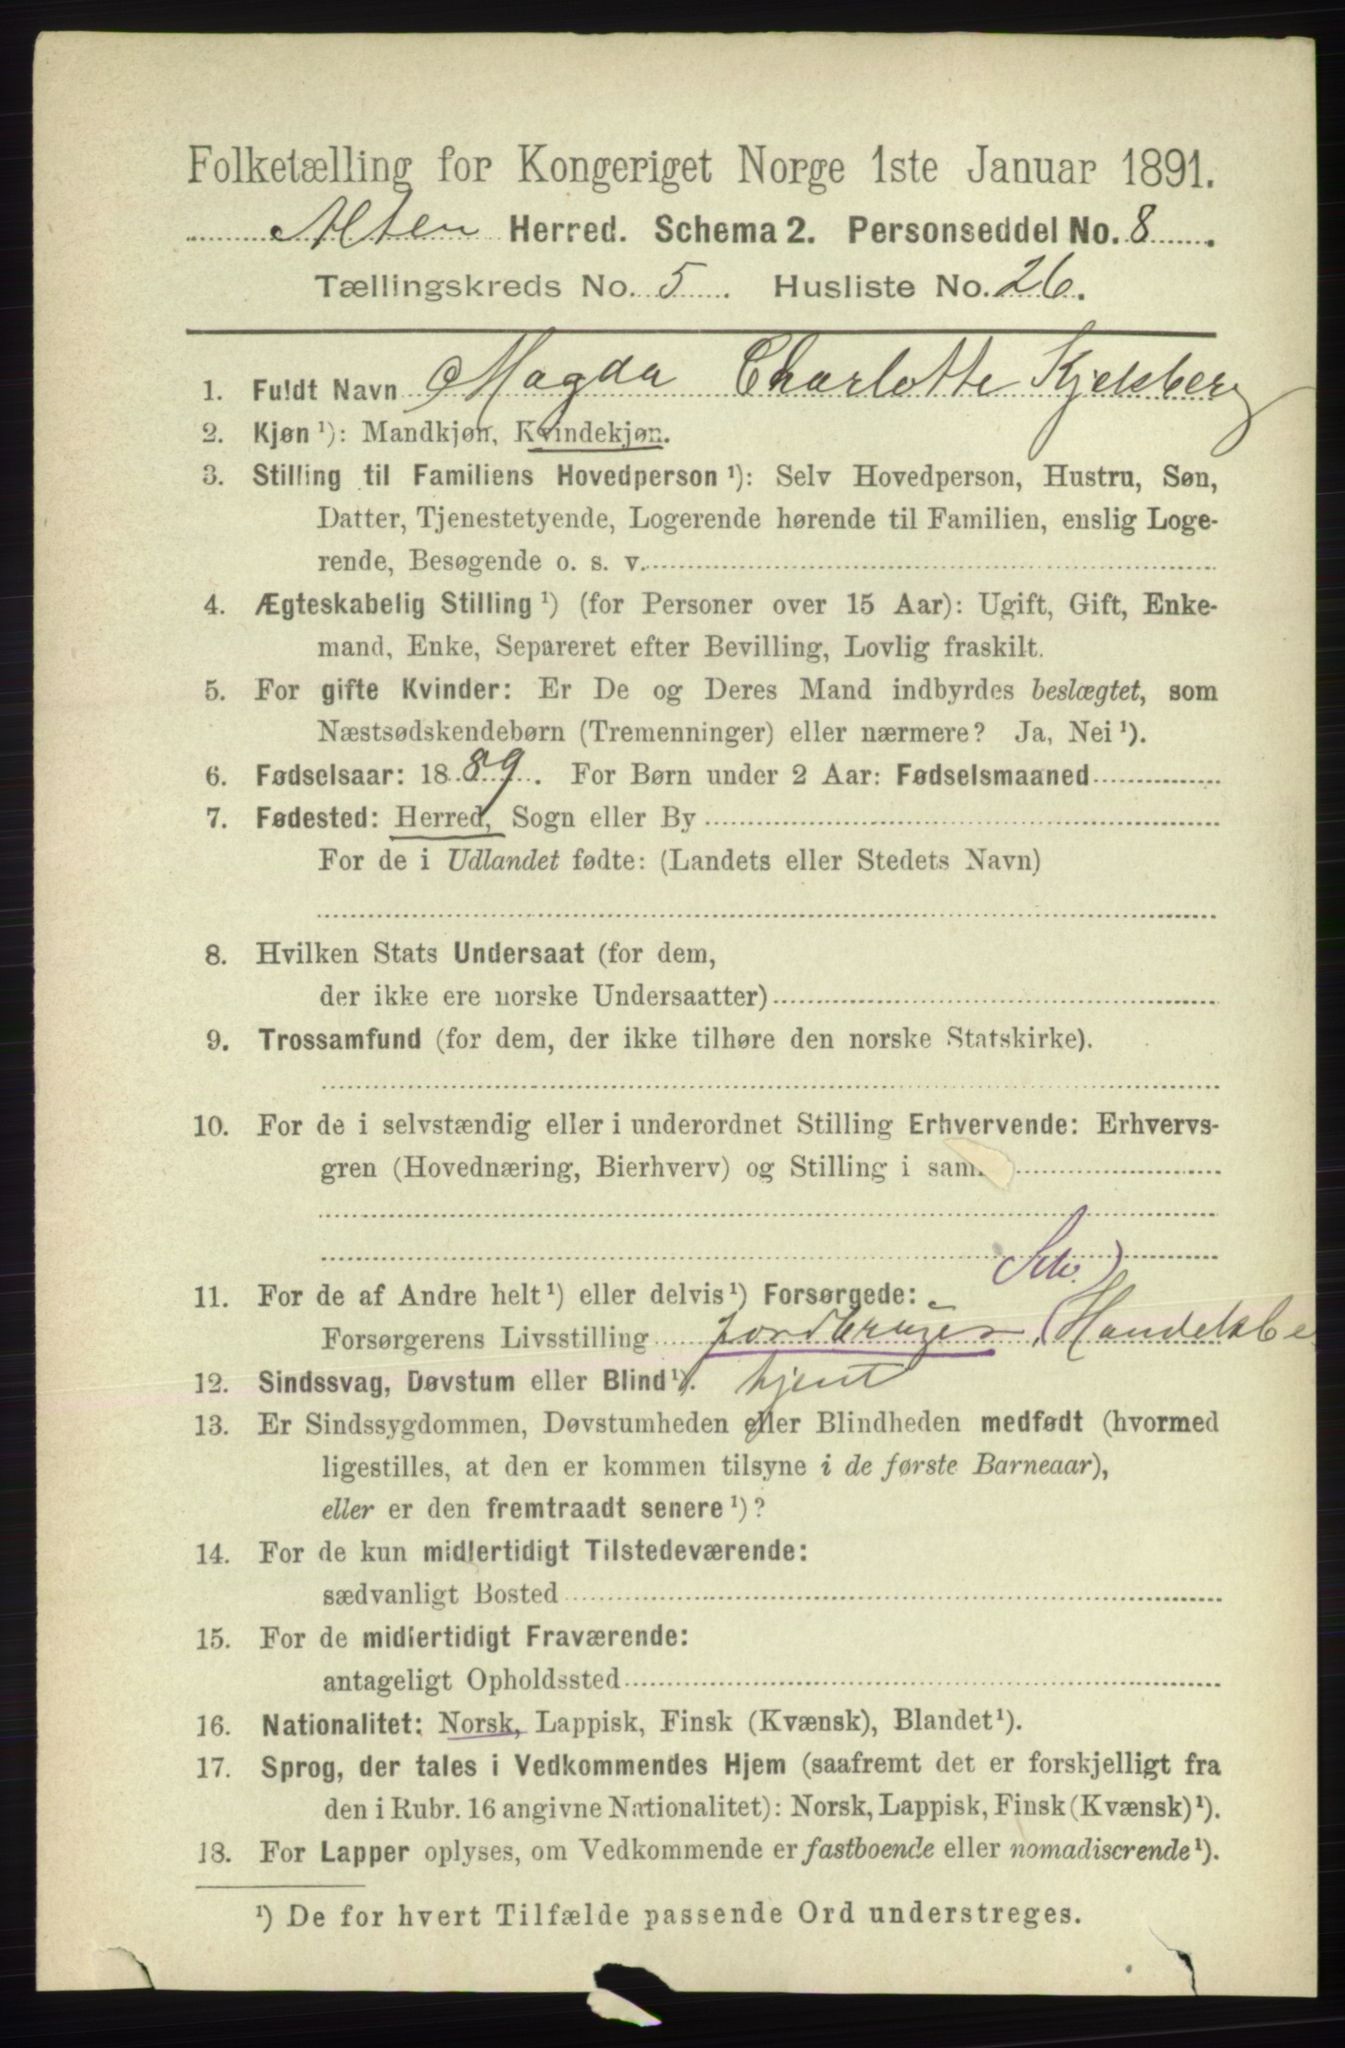 Folketælling for Kongeriget Norge 1ste Januar 1891.
Alten Herred. Schema 2. Personseddel No. 8.
Tællingskreds No. 5. Husliste No. 26.
1. Fuldt Navn Magda Charlotte Kjelsberg
2. Kjøn ¹): Mandkjøn, Kvindekjøn.
3. Stilling til Familiens Hovedperson ¹): Selv Hovedperson, Hustru, Søn,
Datter, Tjenestetyende, Logerende hørende til Familien, enslig Loge-
rende, Besøgende o. s. v.
4. Ægteskabelig Stilling ¹) (for Personer over 15 Aar): Ugift, Gift, Enke-
mand, Enke, Separeret efter Bevilling, Lovlig fraskilt.
5. For gifte Kvinder: Er De og Deres Mand indbyrdes beslægtet, som
Næstsødskendebørn (Tremenninger) eller nærmere? Ja, Nei ¹).
6. Fødselsaar: 1889. For Børn under 2 Aar: Fødselsmaaned
7. Fødested: Herred, Sogn eller By
For de i Udlandet fødte: (Landets eller Stedets Navn)
8. Hvilken Stats Undersaat (for dem,
der ikke ere norske Undersaatter)
9. Trossamfund (for dem, der ikke tilhøre den norske Statskirke).
10. For de i selvstændig eller i underordnet Stilling Erhvervende: Erhvervs-
gren (Hovednæring, Bierhverv) og Stilling i sam
Selv.)
11. For de af Andre helt ¹) eller delvis ¹) Forsørgede:
Forsørgerens Livsstilling Jordbruger (Handelsbe
12. Sindssvag, Døvstum eller Blind ¹). tjent
13. Er Sindssygdommen, Døvstumheden eller Blindheden medfødt (hvormed
ligestilles, at den er kommen tilsyne i de første Barneaar),
eller er den fremtraadt senere ¹)?
14. For de kun midlertidigt Tilstedeværende:
sædvanligt Bosted
15. For de midlertidigt Fraværende:
antageligt Opholdssted
16. Nationalitet: Norsk, Lappisk, Finsk (Kvænsk), Blandet ¹).
17. Sprog, der tales i Vedkommendes Hjem (saafremt det er forskjelligt fra
den i Rubr. 16 angivne Nationalitet): Norsk, Lappisk, Finsk (Kvænsk) ¹).
18. For Lapper oplyses, om Vedkommende er fastboende eller nomadiserende ¹).
¹) De for hvert Tilfælde passende Ord understreges.